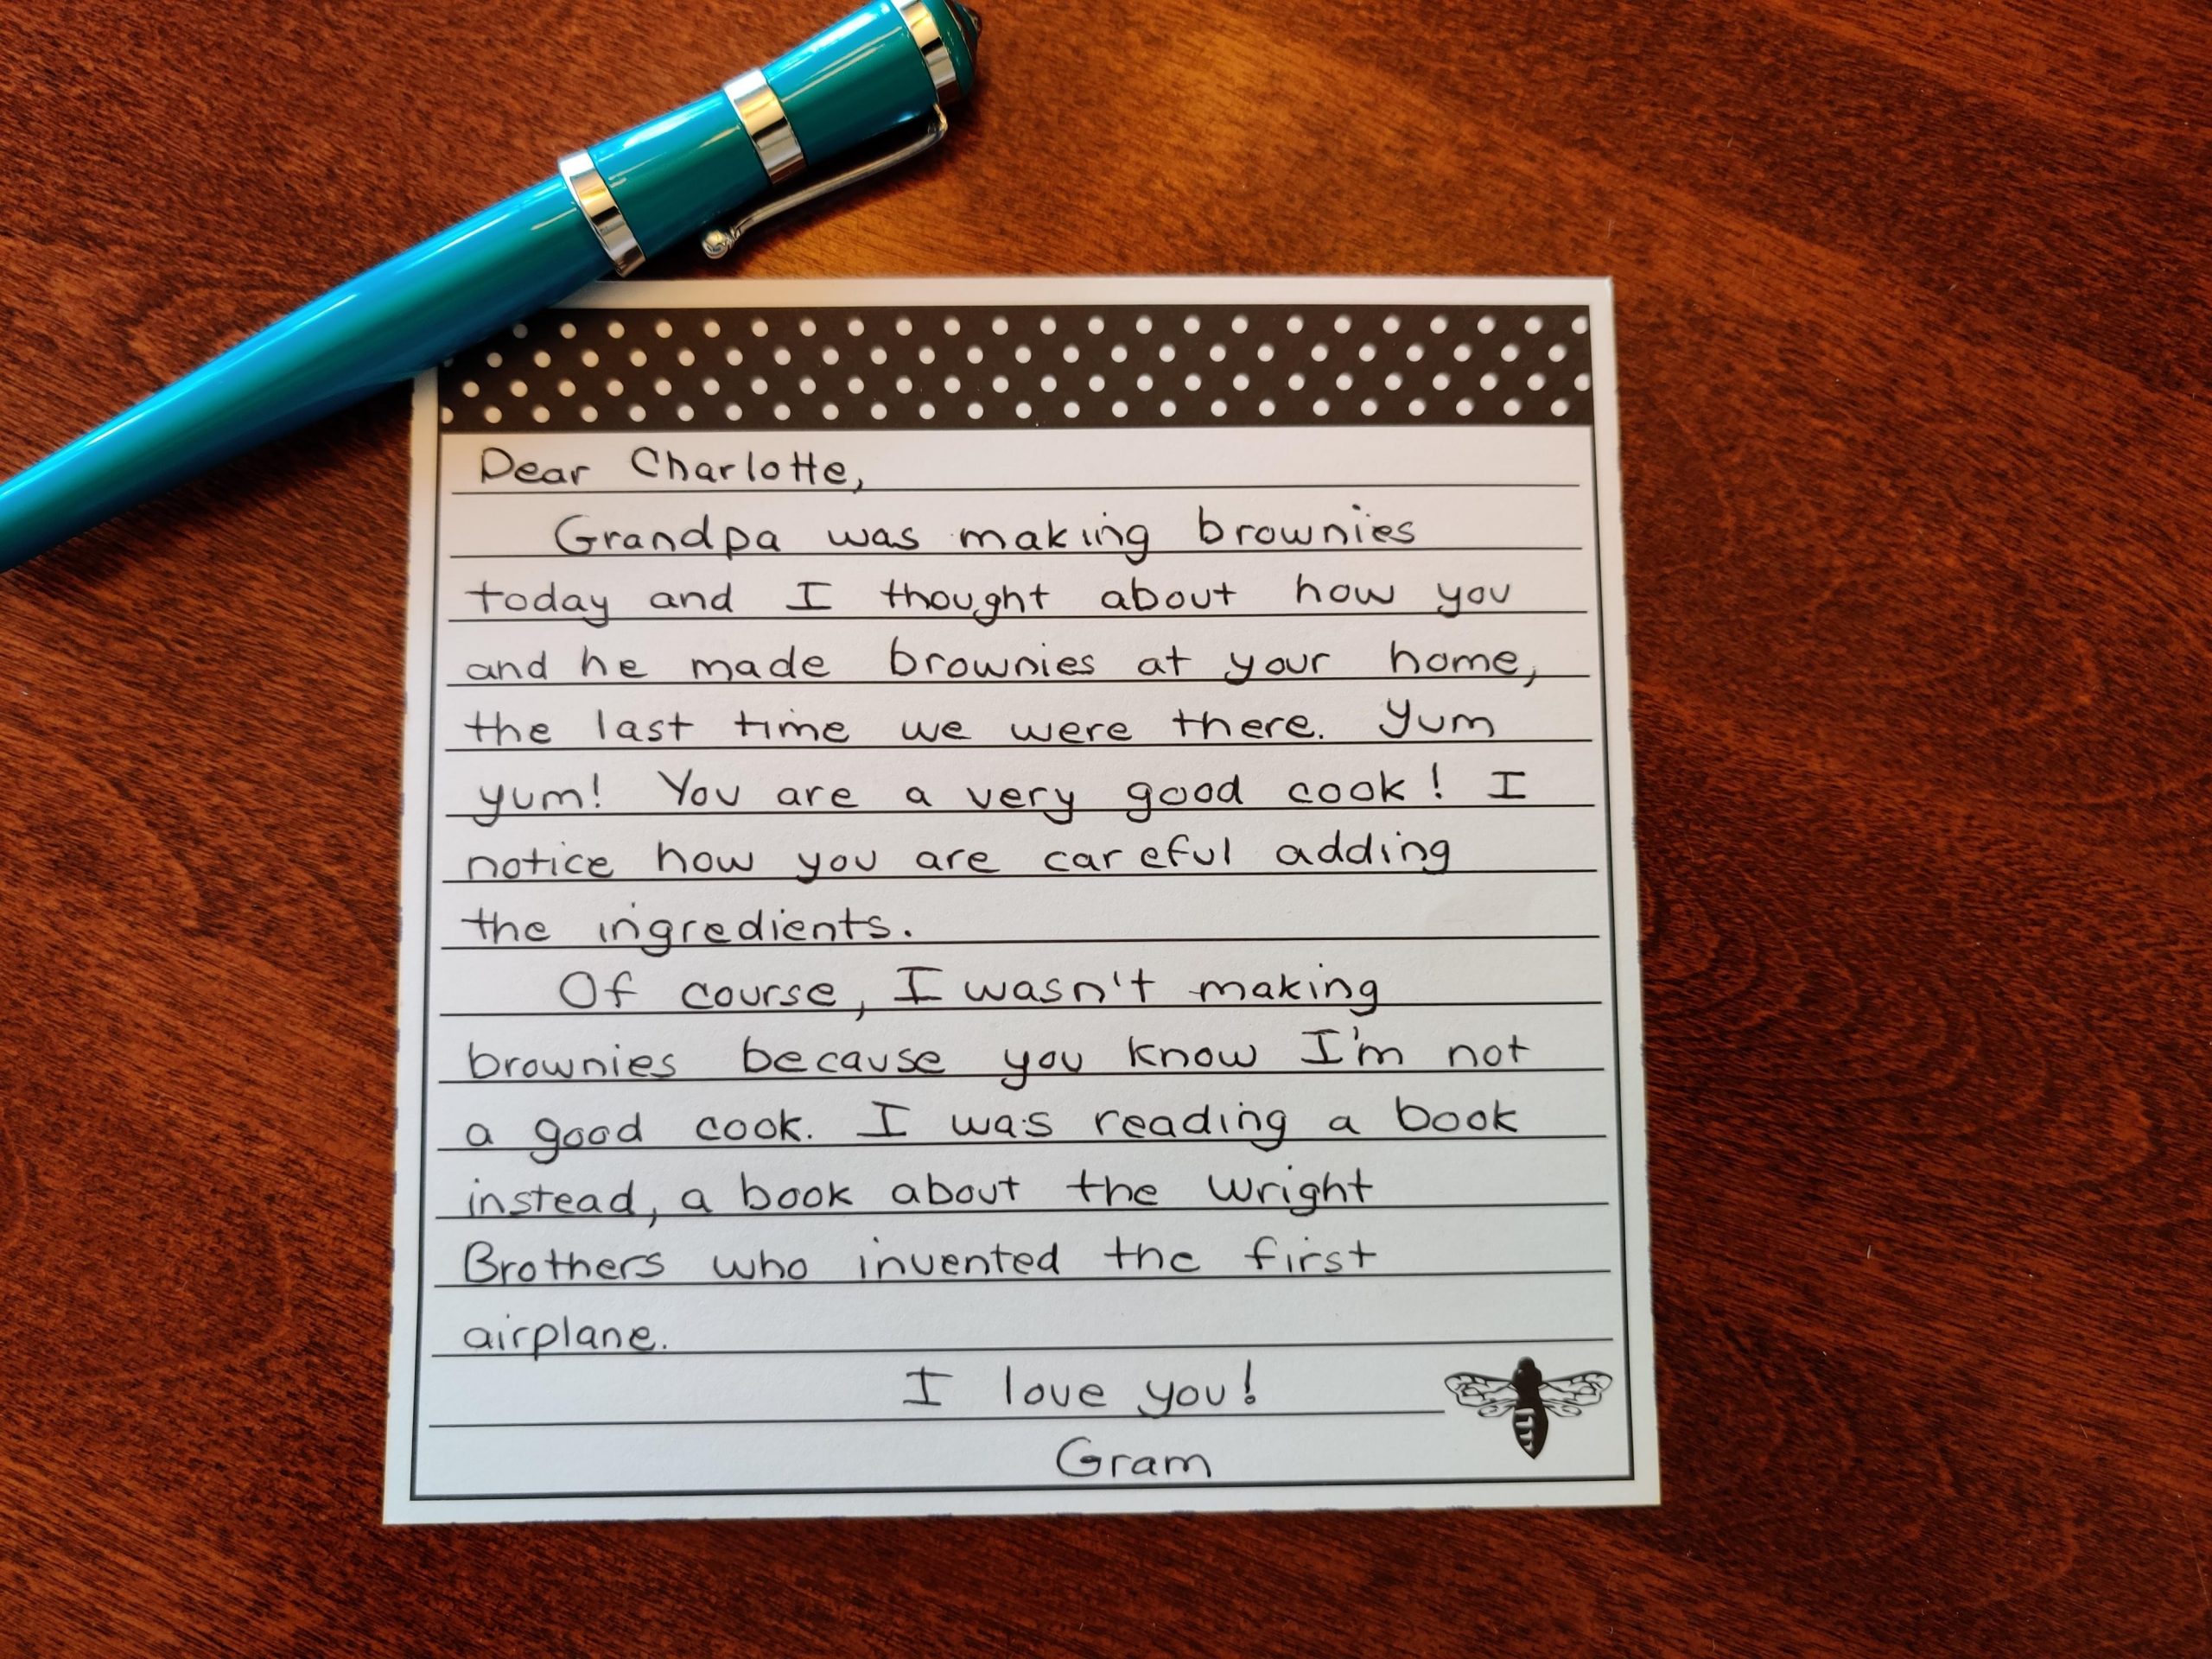 Dear Charlotte,
Grandpa was making brownies
today and I thought about how you
and he made brownies at your home,
the last time we were there. Yum
yum! You are a very good cook! I
notice how you are careful adding
the ingredients.
Of course, I wasn't making
brownies because you know I'm not
a good cook. I was reading a book
instead, a book about the Wright
Brothers who invented the first
airplane.
I love you!
Gram